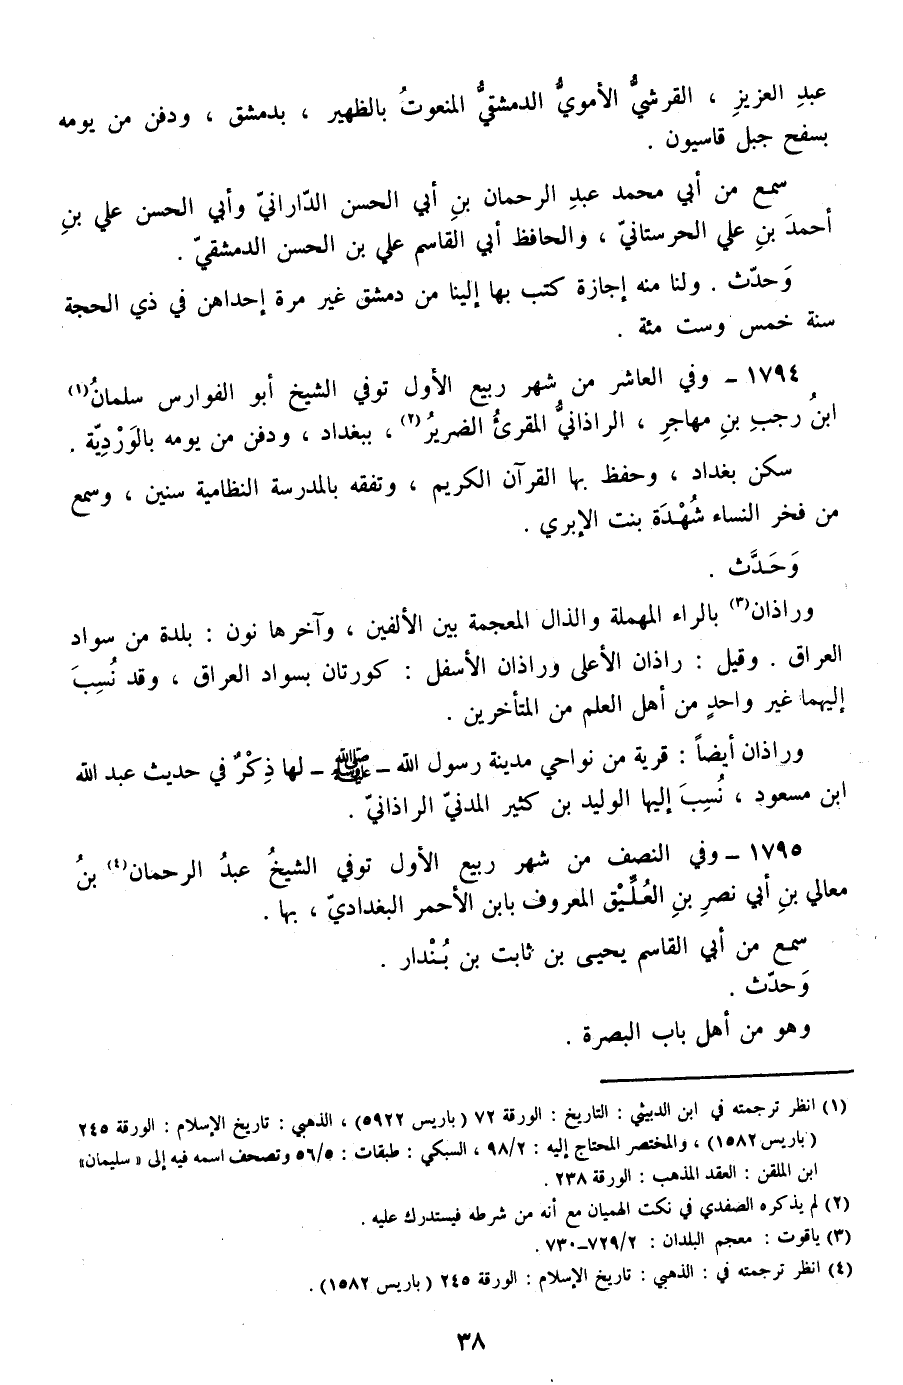 عبدِ العزيزِ ، القرشيُّ الأمويُّ الدمشقيُّ المنعوتُ بالظهير ، بدمشق ، ودفن من يومه
بسفح جبل قاسيون .
سمع من أبي محمد عبدِ الرحمان بنِ أبي الحسن الدّارانيّ وأبي الحسن علي بنِ
أحمدَ بنِ علي الحرستانيّ ، والحافظ أبي القاسم علي بن الحسن الدمشقيّ .
وَحدّث . ولنا منه إجازة كتب بها إلينا من دمشق غير مرة إحداهن في ذي الحجة
سنة خمس وست مئة .
١٧٩٤ ــ وفي العاشر من شهر ربيع الأول توفي الشيخ أبو الفوارس سلمانُ(١)
ابنُ رجبِ بنِ مهاجرِ ، الراذانيُّ المقرئُ الضريرُ(٢) ، ببغداد ، ودفن من يومه بالوَرْدِيّة .
سكن بغداد ، وحفظ بها القرآن الكريم ، وتفقه بالمدرسة النظامية سنين ، وسمع
من فخر النساء شُهْدَة بنت الإبري .
وَحَدَّث .
وراذان(٣) بالراء المهملة والذال المعجمة بين الألفين ، وآخرها نون : بلدة من سواد
العراق . وقيل : راذان الأعلى وراذان الأسفل : كورتان بسواد العراق ، وقد نُسِبَ
إليهما غير واحدٍ من أهل العلم من المتأخرين .
وراذان أيضاً : قرية من نواحي مدينة رسول الله ــ ﷺ ــ لها ذِكْرٌ في حديث عبد الله
ابن مسعود ، نُسِبَ إليها الوليد بن كثير المدنيّ الراذانيّ .
١٧٩٥ ــ وفي النصف من شهر ربيع الأول توفي الشيخُ عبدُ الرحمان(٤) بنُ
معالي بنِ أبي نصرِ بنِ العُلَّيْق المعروف بابن الأحمر البغداديّ ، بها .
سمع من أبي القاسم يحيى بن ثابت بن بُنْدار .
وَحدّث .
وهو من أهل باب البصرة .
(١) انظر ترجمته في ابن الدبيثي : التاريخ : الورقة ٧٢ ( باريس ٥٩٢٢) ، الذهبي : تاريخ الإسلام : الورقة ٢٤٥
( باريس ١٥٨٢) ، والمختصر المحتاج إليه : ٩٨/٢ ، السبكي : طبقات : ٥٦/٥ وتصحف اسمه فيه إلى « سليمان»
ابن الملقن : العقد المذهب : الورقة ٢٣٨ .
(٢) لم يذكره الصفدي في نكت الهميان مع أنه من شرطه فيستدرك عليه .
(٣) ياقوت : معجم البلدان : ٧٢٩/٢ــ٧٣٠ .
(٤) انظر ترجمته في : الذهبي : تاريخ الإسلام : الورقة ٢٤٥ ( باريس ١٥٨٢) .
٣٨